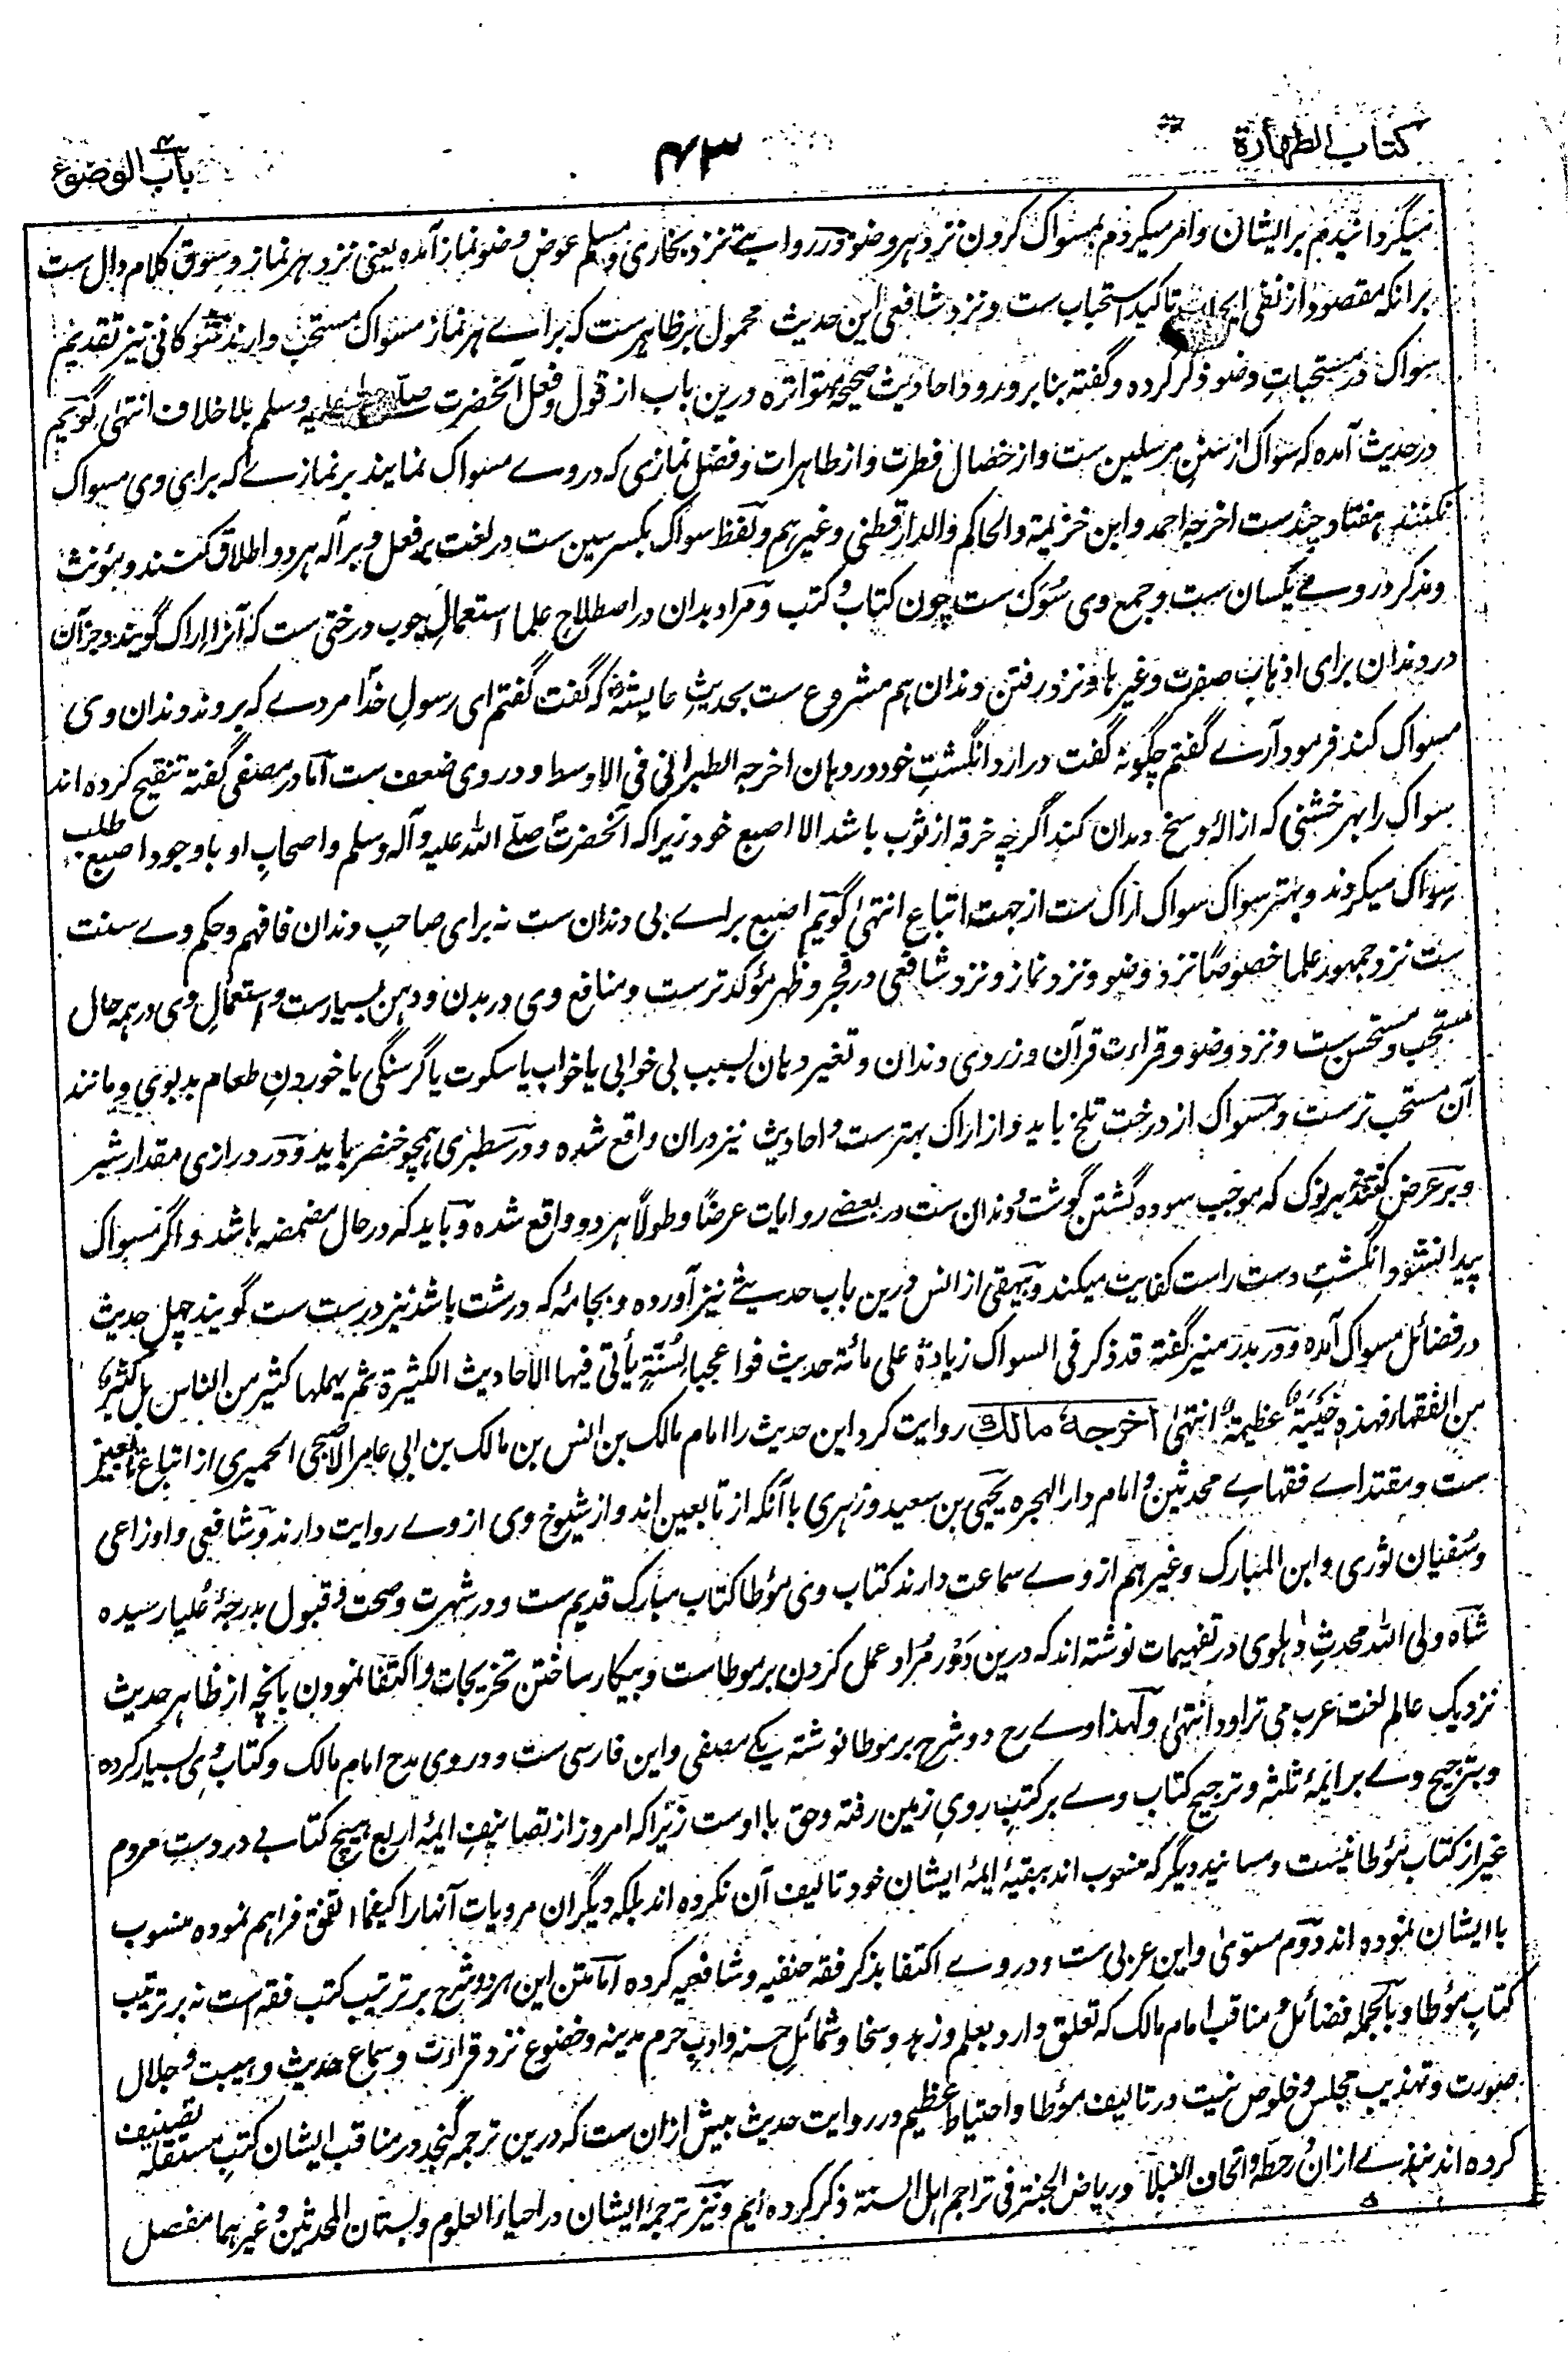 کتاب الطهارة
۴۳
باب الوضوء
میگردانیدم بر ایشان و امر میکردم بمسواک کردن نزد هر وضو و در روایتے نزد بخاری و مسلم عوض وضو نماز آمده یعنی نزد هر نماز و سوق کلام دال ست
برانکه مقصود از نفی ایجاب تاکید استحباب ست و نزد شافعی این حدیث محمول بر ظاهر ست که براے هر نماز مسواک مستحب دارند شوکانی نیز تقدیم
سواک در مستحبات وضو ذکر کرده و گفته بنا بر ورود احادیث صحیحه متواتره درین باب از قول و فعل آنحضرت صلی الله علیه وسلم بلا خلاف انتهی گویم
در حدیث آمده که سواک از سنن مرسلین ست و از خصال فطرت و از طاهرات و فضل نمازی که در وے مسواک نمایند بر نمازے که برای وی مسواک
نکنند هفتاد چند ست اخرجه احمد و ابن خزیمة و الحاکم و الدارقطنی و غیرهم و لفظ سواک بکسر سین ست در لغت بر فعل و بر آله هر دو اطلاق کنند و مؤنث
و مذکر در وے یکسان ست و جمع وی سُوُک ست چون کتاب و کتب و مراد بدان در اصطلاح علما استعمالِ چوب درختی ست که آنرا اراک گویند و جز آن
در دندان برای اذهاب صفرت و غیرها و نزد رفتن دندان هم مشروع ست بحدیثِ عایشه رض که گفت گفتم ای رسولِ خدا مردے که بروند دندان وی
مسواک کند فرمود آرے گفتم چگونه گفت در ارد انگشتِ خود در دهان اخرجه الطبرانی فی الاوسط و در وی ضعف ست اما در مصفی گفته تنقیح کرده اند
سواک را بهر خشنی که ازالهٔ وسخ دندان کند اگرچه خرقه از ثوب باشد الا اصبع خود زیرا که آنحضرت صلے الله علیه و آله وسلم و اصحابِ او با وجود اصبع طلب
سواک میکردند و بهتر سواک سواک اراک ست از جهت اتباع انتهیٰ گویم اصبع براے بی دندان ست نه برای صاحبِ دندان فافهم و حکم وے سنت
ست نزد جمهور علما خصوصًا نزد وضو و نزد نماز و نزد شافعی در فجر و ظهر مؤکد ترست و منافع وی در بدن و دهن بسیار ست و استعمالِ وی در همه حال
مستحب و مستحسن ست و نزد وضو و قراءت قرآن و زردی دندان و تغیر دهان بسبب بی خوابی یا خواب یا سکوت یا گرسنگی یا خوردنِ طعام بدبوی و مانند
آن مستحب ترست و مسواک از درخت تلخ باید و از اراک بهترست و احادیث نیز دران واقع شده و در سطبری همچو خنصر باید و در درازی مقدار شبر
و بر عرض کنند نه بر نوک که موجب سوده گشتن گوشت دندان ست در بعضے روایات عرضًا و طولًا هر دو واقع شده و باید که در حال مضمضه باشد و اگر مسواک
پیدا نشود انگشتِ دست راست کفایت میکند و بیهقی از انس درین باب حدیثے نیز آورده و بجامهٔ که درشت باشد نیز درست ست گویند چهل حدیث
در فضائل مسواک آمده و در بدر منیر گفته قد ذکر فی السواک زیادة علی مائة حدیث فواعجبا لسُنّةٍ یأتی فیها الاحادیث الکثیرة ثم یهملها کثیر من الناس بل کثیرٌ
من الفقهاء فهذه خیبة عظیمة انتهیٰ اخرجه مالک روایت کرد این حدیث را امام مالک بن انس بن مالک بن ابی عامر الاصبحی الحمیری از اتباع تابعین
ست و مقتداے فقهاے محدثین و امام دار الهجره یحیی بن سعید و زهری با آنکه از تابعین اند و از شیوخ وی از وے روایت دارند و شافعی و اوزاعی
و سُفیان ثوری و ابن المبارک و غیرهم از وے سماعت دارند کتاب وی مؤطا کتاب مبارک قدیم ست و در شهرت و صحت و قبول بدرجهٔ عُلیا رسیده
شاه ولی الله محدثِ دهلوی در تفهیمات نوشته اند که درین دَور مُراد عمل کردن بر موطاست و بیکار ساختن تخریجات و اکتفا نمودن بآنچه از ظاهر حدیث
نزدیک عالم لغت عرب می تراود انتهیٰ و لهذا وے رح دو شرح بر موطا نوشته یکے مصفی و این فارسی ست و در وی مدح امام مالک و کتاب وی بسیار کرده
و بترجیح وے بر ائمهٔ ثلثه و ترجیح کتاب وے بر کتبِ روی زمین رفته و حق با اوست زیرا که امروز از تصانیفِ ایمهٔ اربع هیچ کتابے در دستِ مردم
غیر از کتاب مؤطا نیست و مسانید دیگر که منسوب اند ببقیهٔ ایمهٔ ایشان خود تالیف آن نکرده اند بلکه دیگران مرویات آنها را کیفما اتفق فراهم نموده منسوب
با ایشان نموده اند دوم مسویٰ و این عربی ست و در وے اکتفا بذکر فقه حنفیه و شافعیه کرده اما متن این هر دو شرح بر ترتیب کتب فقه است نه بر ترتیب
کتابِ مؤطا و بالجمله فضائل و مناقب امام مالک که تعلق دارد بعلم و زهد و سخا و شمائلِ حسنه و ادبِ حرم مدینه و خضوع نزد قراءت و سماع حدیث و هیبت و جلال
صورت و تهذیب مجلس و خلوص نیت در تالیف مؤطا و احتیاط عظیم در روایت حدیث بیش ازان ست که درین ترجمه گنجد در مناقب ایشان کتبِ مستقله تصنیف
کرده اند نبذے ازان در حطه و اتحاف النبلا و ریاض الجنة فی تراجم اهل السنة ذکر کرده ایم و نیز ترجمهٔ ایشان در احیاء العلوم و بستان المحدثین و غیرهما مفصل